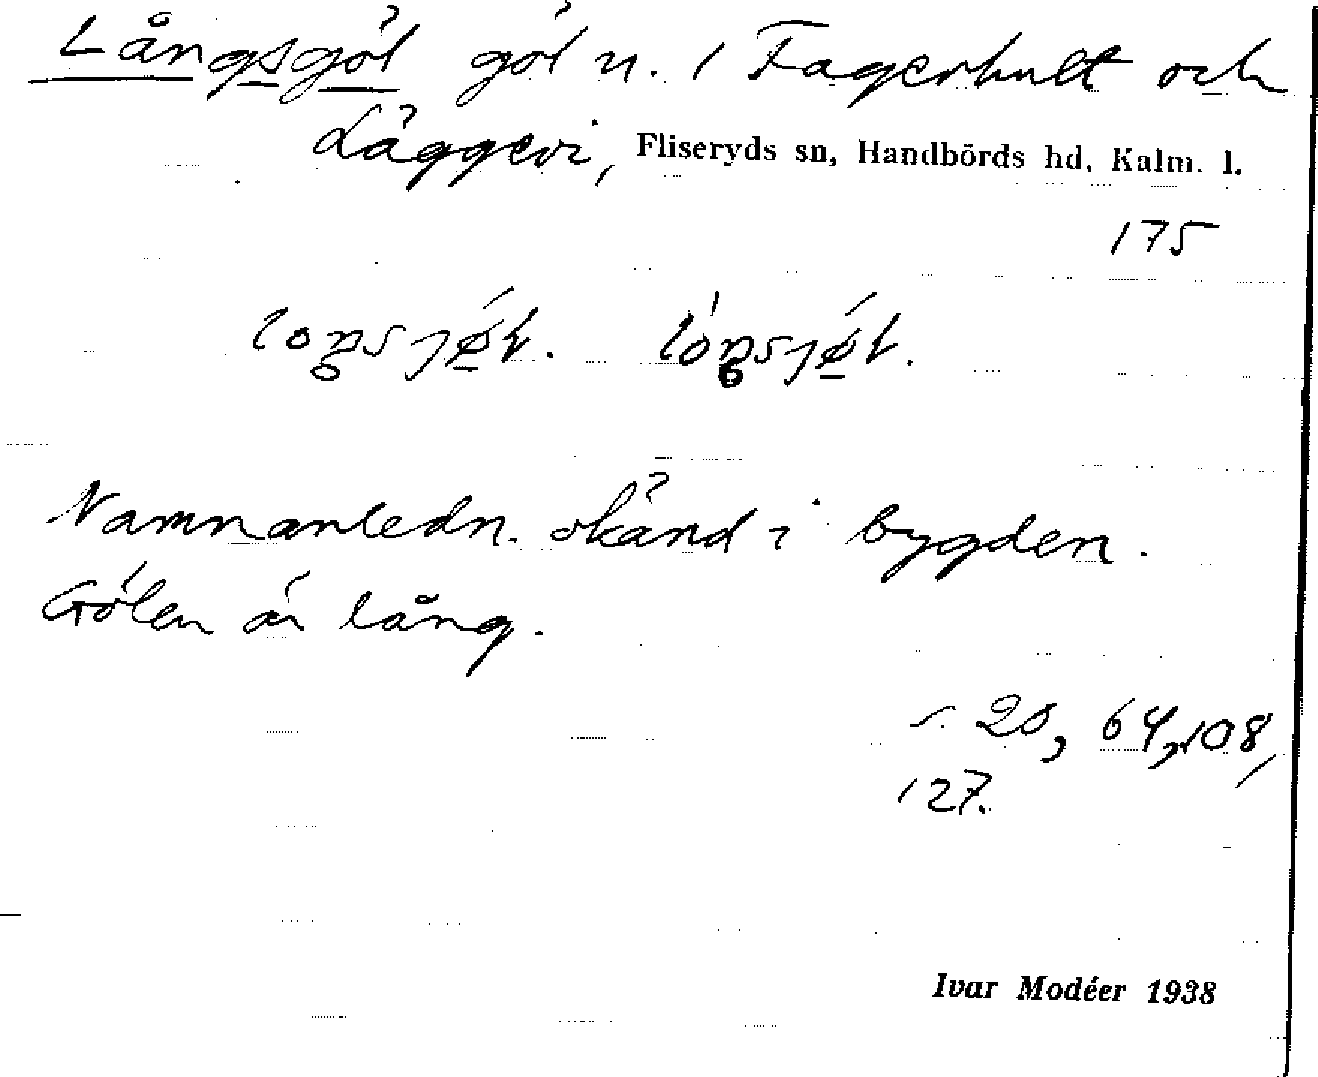 Långsgöl göl n. i Fagerhult och
Läggevi, Fliseryds sn, Handbörds hd, Kalm. l.
175
Namnanledn. okänd i bygden.
Gölen är lång.
s. 20, 64, 108,
127.
Ivar Modéer 1938